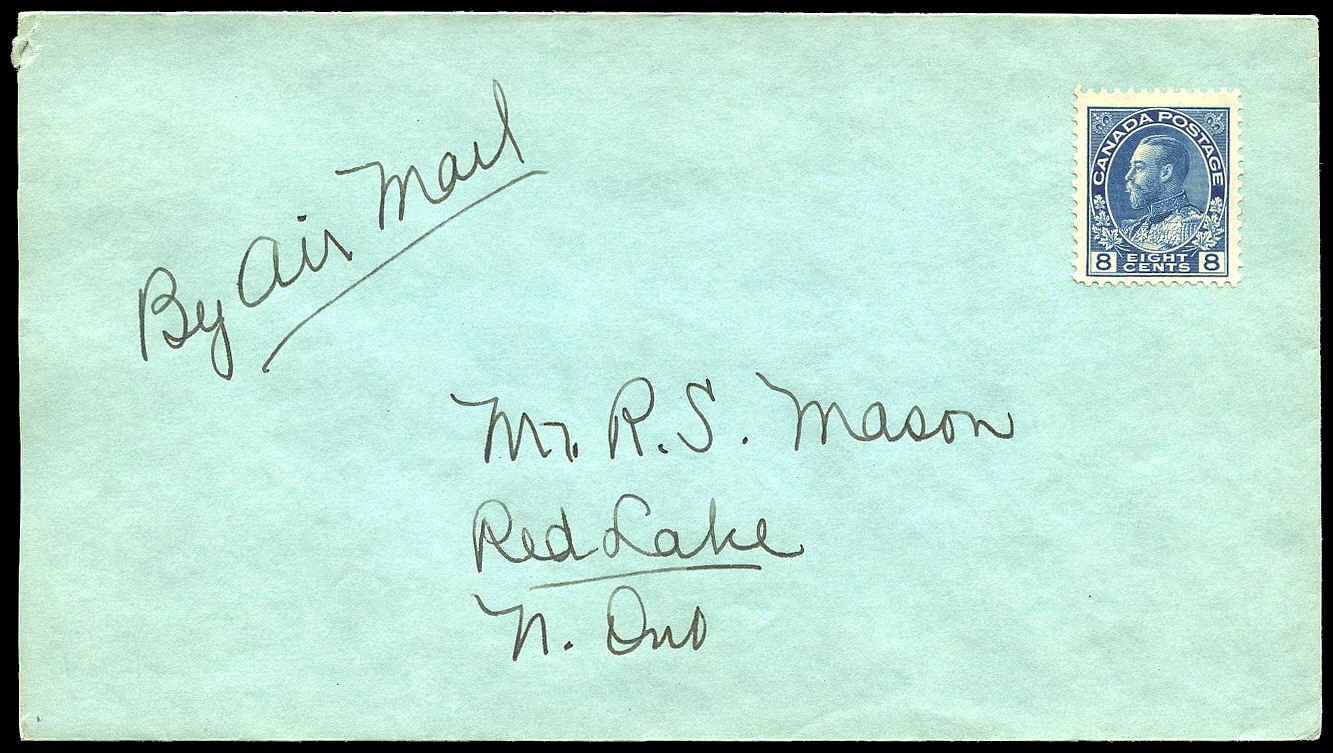 By Air Mail
CANADA POSTAGE
8 EIGHT CENTS 8
Mr. R. S. Mason
Red Lake
N. Ont